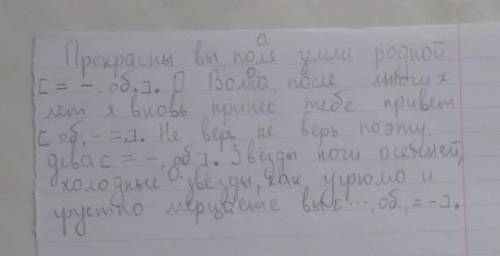 О.
Прекрасны вы, поле земли родной
[= -, об.]. О Волга, после многих
О.
лет я вновь принес тебе привет
[об, - =.]. Не верь, не верь поэту,
дева [= -, об]. Звёзды ночи осенней,
О.
холодные звёзды, как угрюмо и
грустно мерцаете вы [..., об., = -].